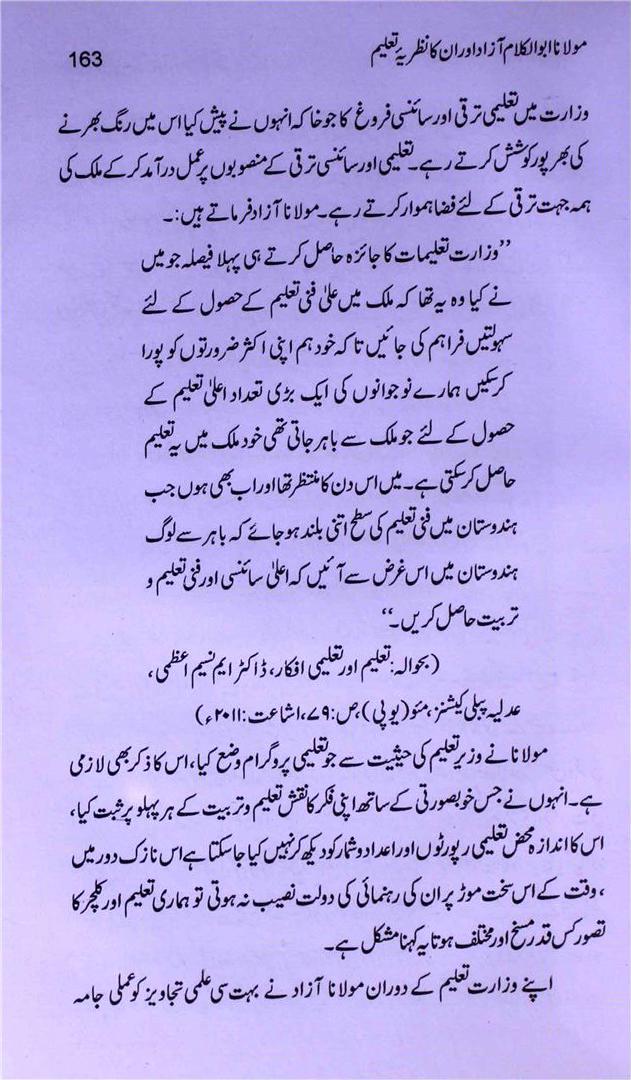 مولانا ابوالکلام آزاد اور ان کا نظریۂ تعلیم
163
وزارت میں تعلیمی ترقی اور سائنسی فروغ کا جو خاکہ انہوں نے پیش کیا اس میں رنگ بھرنے
کی بھرپور کوشش کرتے رہے۔ تعلیمی اور سائنسی ترقی کے منصوبوں پر عمل درآمد کر کے ملک کی
ہمہ جہت ترقی کے لئے فضا ہموار کرتے رہے۔ مولانا آزاد فرماتے ہیں:۔
’’وزارت تعلیمات کا جائزہ حاصل کرتے ہی پہلا فیصلہ جو میں
نے کیا وہ یہ تھا کہ ملک میں علیٰ فنی تعلیم کے حصول کے لئے
سہولتیں فراہم کی جائیں تاکہ خود ہم اپنی اکثر ضرورتوں کو پورا
کرسکیں ہمارے نوجوانوں کی ایک بڑی تعداد اعلیٰ تعلیم کے
حصول کے لئے جو ملک سے باہر جاتی تھی خود ملک میں یہ تعلیم
حاصل کرسکتی ہے۔ میں اس دن کا منتظر تھا اور اب بھی ہوں جب
ہندوستان میں فنی تعلیم کی سطح اتنی بلند ہو جائے کہ باہر سے لوگ
ہندوستان میں اس غرض سے آئیں کہ اعلیٰ سائنسی اور فنی تعلیم و
تربیت حاصل کریں۔‘‘
(بحوالہ: تعلیم اور تعلیمی افکار، ڈاکٹر ایم نسیم اعظمی،
عدلیہ پبلی کیشنز، مئو (یوپی)، ص: ۷۹، اشاعت: ۲۰۱۱ء)
مولانا نے وزیر تعلیم کی حیثیت سے جو تعلیمی پروگرام وضع کیا، اس کا ذکر بھی لازمی
ہے۔ انہوں نے جس خوبصورتی کے ساتھ اپنی فکر کا نقش تعلیم و تربیت کے ہر پہلو پر ثبت کیا،
اس کا اندازہ محض تعلیمی رپورٹوں اور اعداد و شمار کو دیکھ کر نہیں کیا جاسکتا ہے اس نازک دور میں
، وقت کے اس سخت موڑ پر ان کی رہنمائی کی دولت نصیب نہ ہوتی تو ہماری تعلیم اور کلچر کا
تصور کس قدر مسخ اور مختلف ہوتا یہ کہنا مشکل ہے۔
اپنے وزارت تعلیم کے دوران مولانا آزاد نے بہت سی علمی تجاویز کو عملی جامہ